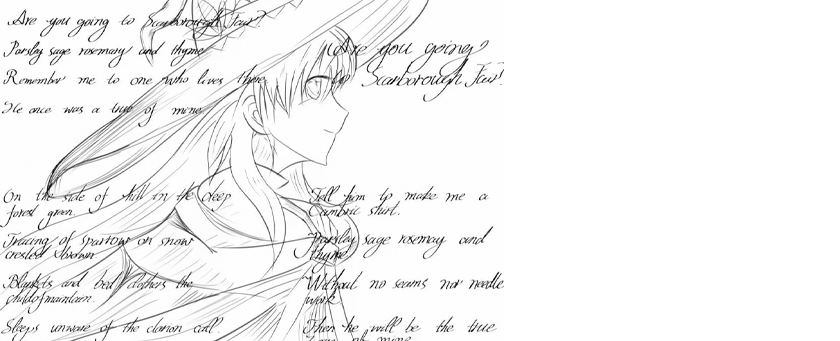 Are you going to Scarborough Fair?
Parsley sage rosemary and thyme
Remember me to one who lives there
He once was a true of mine
Are you going?
to Scarborough Fair!
On the side of hill in the deep
forest green
Tracing of sparrow on snow
crested brown
Blankets and bed clothers the
child of maintain.
Sleeps unware of the clarion call
Tell him to make me a
Cambric shirt.
Parsley sage rosemay and
thyme
Without no seams nor needle
work
Then he will be the true
of mine